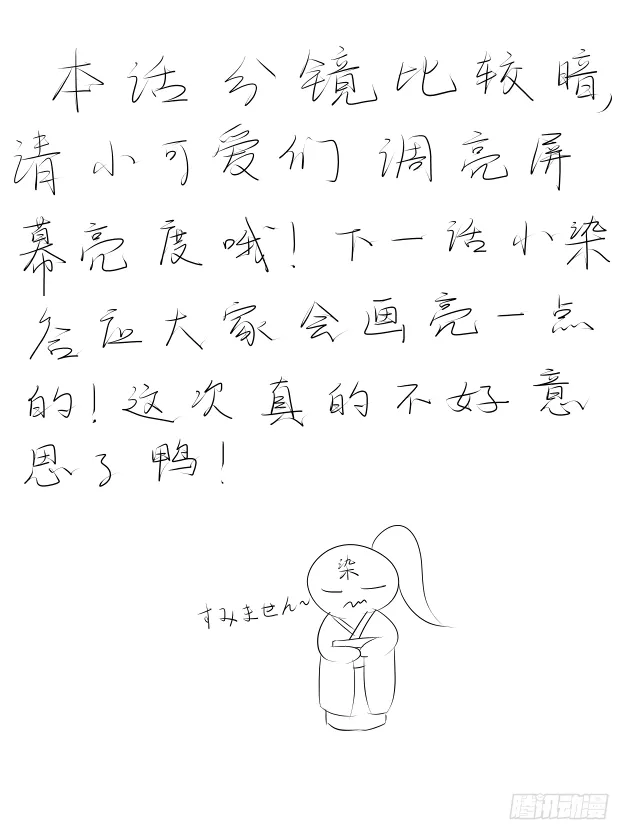 本话分镜比较暗,
请小可爱们调亮屏
幕亮度哦!下一话小染
答应大家会画亮一点
的!这次真的不好意
思了鸭!
染
すみません~
腾讯动漫